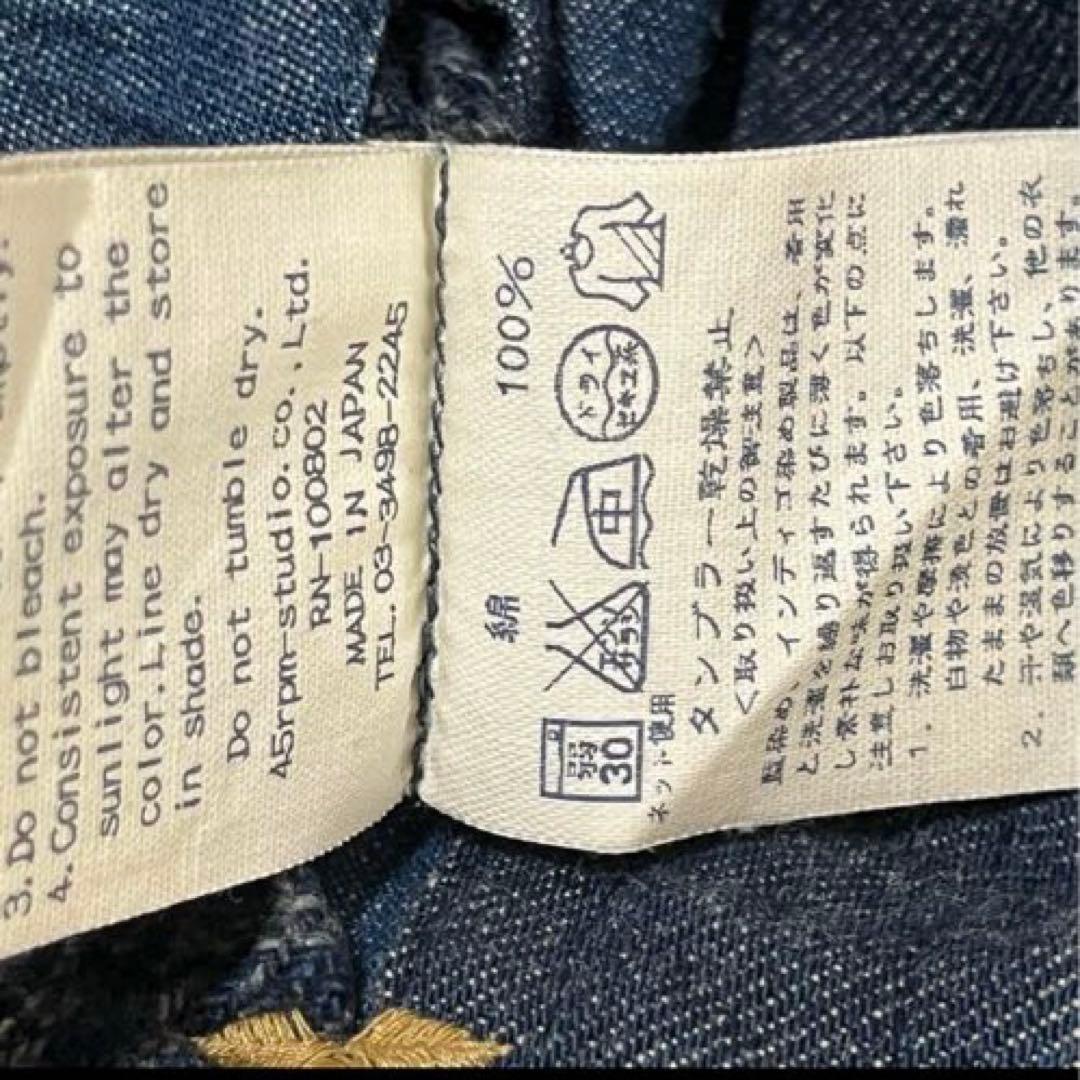 3.Do not bleach.
4.Consistent exposure to
sunlight may alter the
color.Line dry and store
in shade.
Do not tumble dry.
45rpm-studio.co.,Ltd.
RN-100802
MADE IN JAPAN
TEL.03-3498-2245
綿 100%
弱
30
エンソ
サラシ
中
ドライ
セキユ系
ネット使用
タンブラー乾燥禁止
<取り扱い上の御注意>
藍染め、インディゴ染め製品は、着用
と洗濯を繰り返すたびに薄く色が変化
し素朴な味が得られます。以下の点に
注意しお取り扱い下さい。
1. 洗濯や摩擦により色落ちします。
白物や淡色との着用、洗濯、濡れ
たままの放置はお避け下さい。
2. 汗や湿気により色落ちし、他の衣
類へ色移りすることがあります。